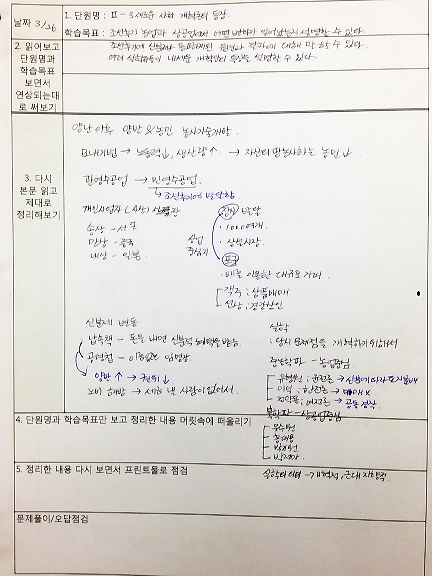 날짜 3/26
1. 단원명 : Ⅱ-3 새로운 사회 개혁론의 등장
학습목표 : 조선후기 농업과 상공업에서 어떤 변화가 일어났는지 설명할 수 있다.
조선후기에 신분제가 동요하게된 원인과 결과에 대해 말할 수 있다.
여러 실학자들이 내세운 개혁론의 특징을 설명할 수 있다.
2. 읽어보고 단원명과 학습목표 보면서 연상되는대로 써보기
3. 다시 본문 읽고 제대로 정리해보기
양난 이후 양반 & 농민 농사기술개량
모내기법 → 노동력↓, 생산량↑ → 자신의 땅 농사하는 농민↓
관영수공업 → 민영수공업
조선후기에 발달함
개인사업자 (사상) 성장
송상 -
만상 - 중국
내상 - 일본
상업 중심지
장시 발달
· 1000여개
· 상설시장
포구
· 배를 이용한 대규모 거래
객주 ; 상품매매
선상 ; 경강상인
신분제 변동
납속책 - 돈을 내면 신분적 혜택을 받음
공명첩 - 이름없는 임명장
양반↑ → 권위↓
노비 해방 → 세금 낼 사람이 없어서.
실학
; 당시 문제점을 개혁하기 위해서
중농학파 - 농업중심
유형원 ; 균전론 → 신분에 따라 토지분배
이익 ; 한전론 → 매매 X
정약용 ; 여전론 → 공동 경작
북학파 - 상공업중심
유수원
홍대용
박지원
박제가
4. 단원명과 학습목표만 보고 정리한 내용 머릿속에 떠올리기
5. 정리한 내용 다시 보면서 프린트물로 점검
실학의 의의 - 개혁적, 근대 지향적
문제풀이/오답점검